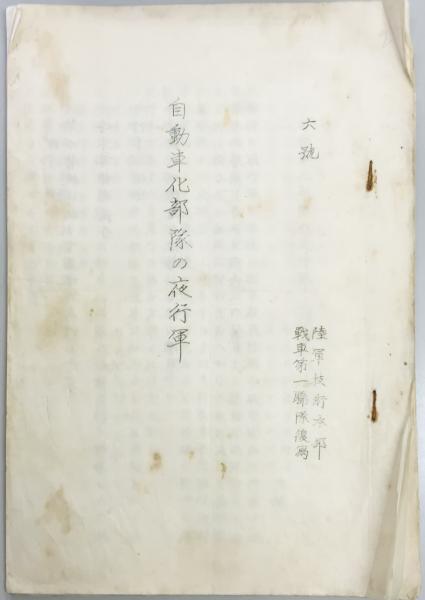 六號
陸軍技術本部
戰車第一聯隊復寫
自動車化部隊の夜行軍